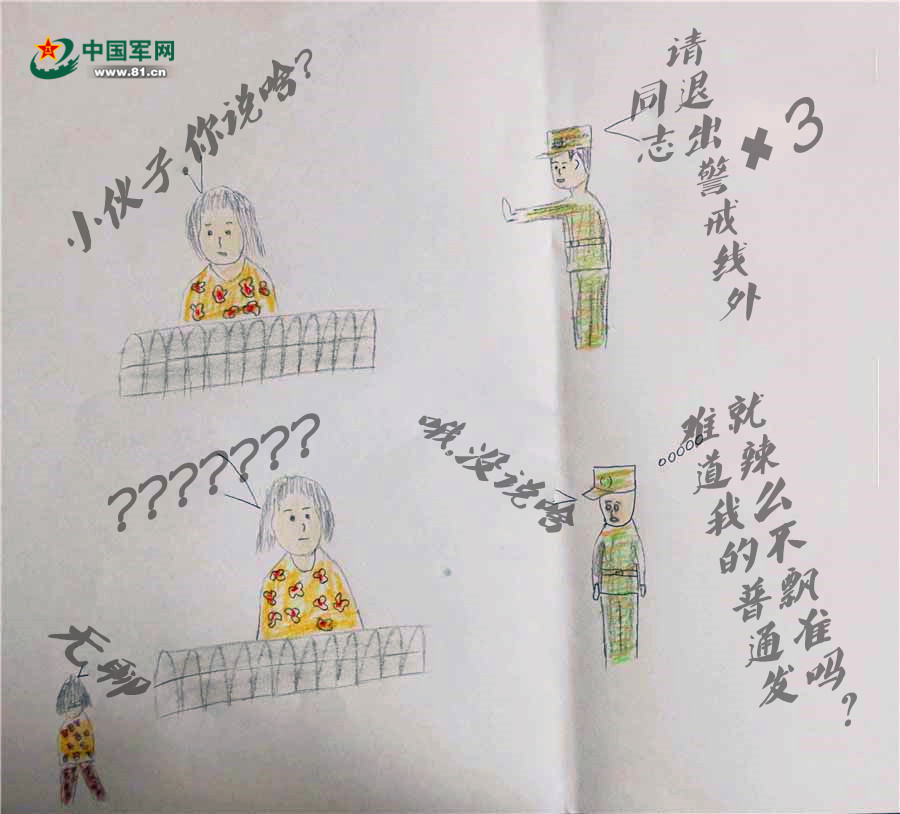 中国军网
www.81.cn
小伙子,你说啥?
同志
请退出警戒线外
×3
???????
哦,没说啥
难道我的普通发
就辣么不飘准吗?
无聊